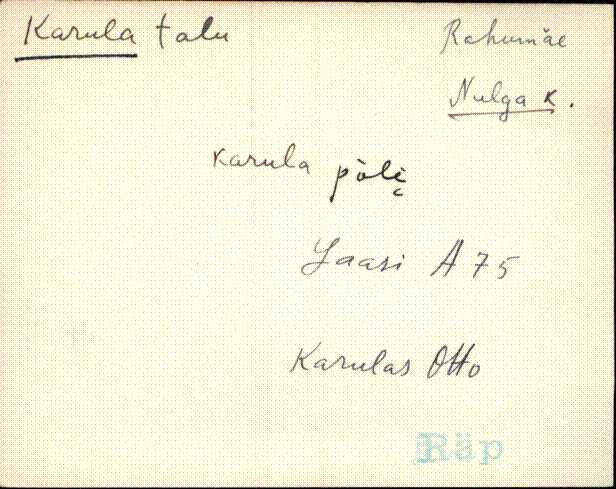 Karula talu
Rahumäe
Nulga k.
karula pȯlè̬
Laasi A 75
Karulas Otto
Räp